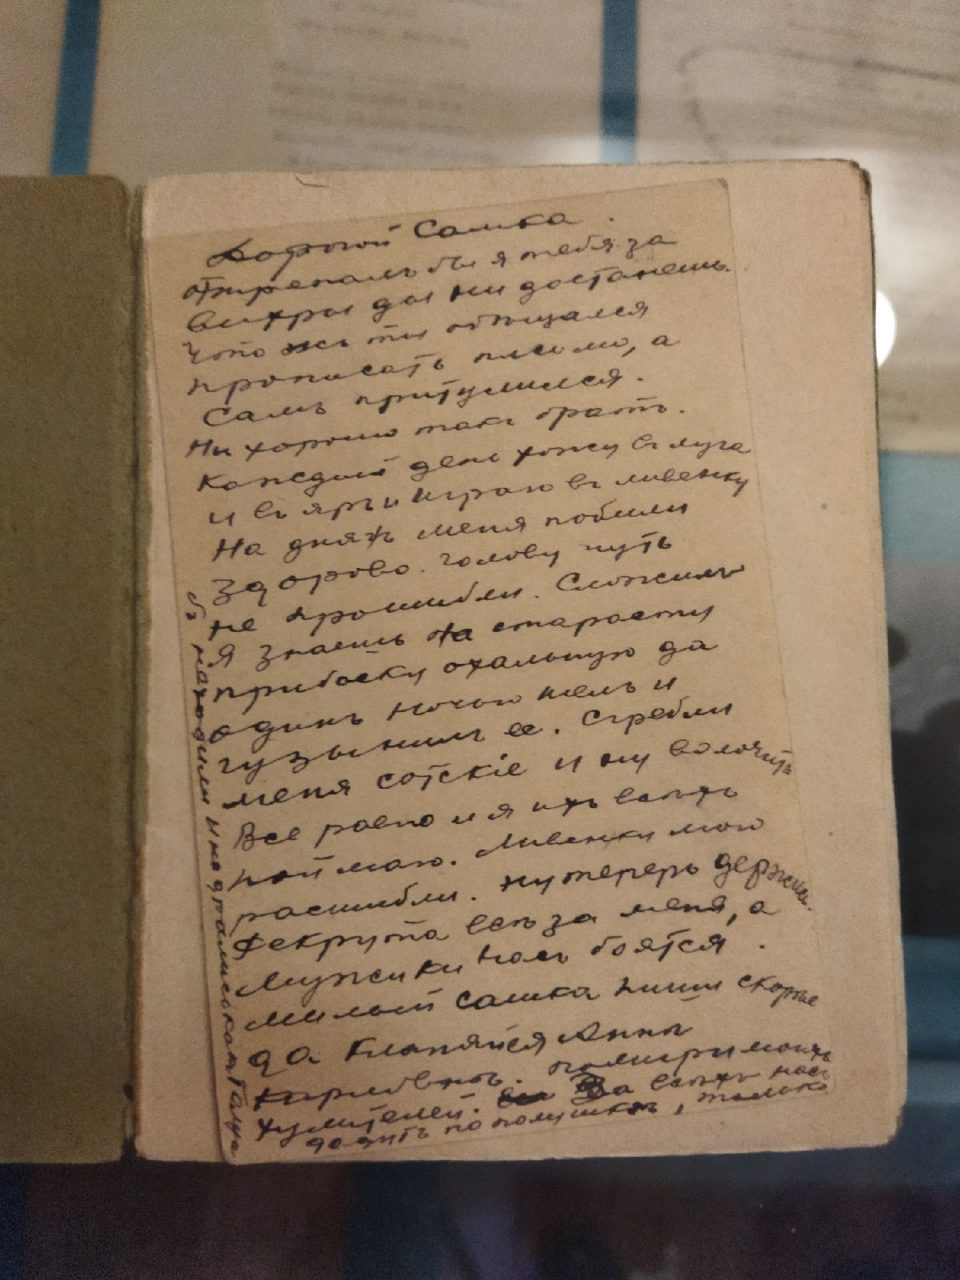 Дорогой Сашка.
Отрепалъ бы я тебя за
вихры да ни достанешь.
Что жъ ты обещался
прописать письмо, а
самъ притулился.
Ни хорошо такъ братъ.
Каждый день хожу въ луга
и въ яръ и играю въ ливенку
На дняхъ меня побили
здорово. Голову чуть
не прошибли. Сложилъ
я знаешь на старосту
прибаску охальную да
одинъ ночью шелъ и
гузынилъ ее. Сгребли
меня сотскіе и ну волочить
Все равно и я ихъ всехъ
поймаю. Ливенку мою
расшибли. ну теперь держись.
Рекрута все за меня, а
Мужики насъ боятся.
Милый Сашка пиши скорее
да кланяйся Анны
Карповны. помири моихъ
хулителей. За всехъ насъ
дадутъ по полушке, только
бъ находили и не дрались